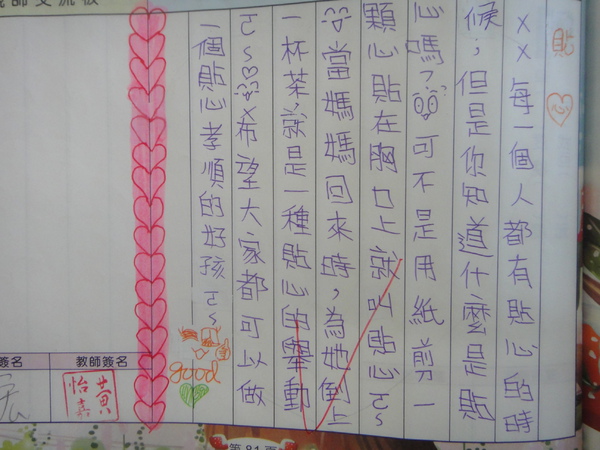 貼♡
××每一個人都有貼心的時
候;但是你知道什麼是貼
心嗎?可不是用紙剪一
顆心貼在胸口上就叫貼心ㄛ~
當媽媽回來時,為她倒上
一杯茶,就是一種貼心的舉動
ㄛ~♡×希望大家都可以做
一個貼心孝順的好孩ㄛ~
good
教師簽名
簽名
黃怡嘉